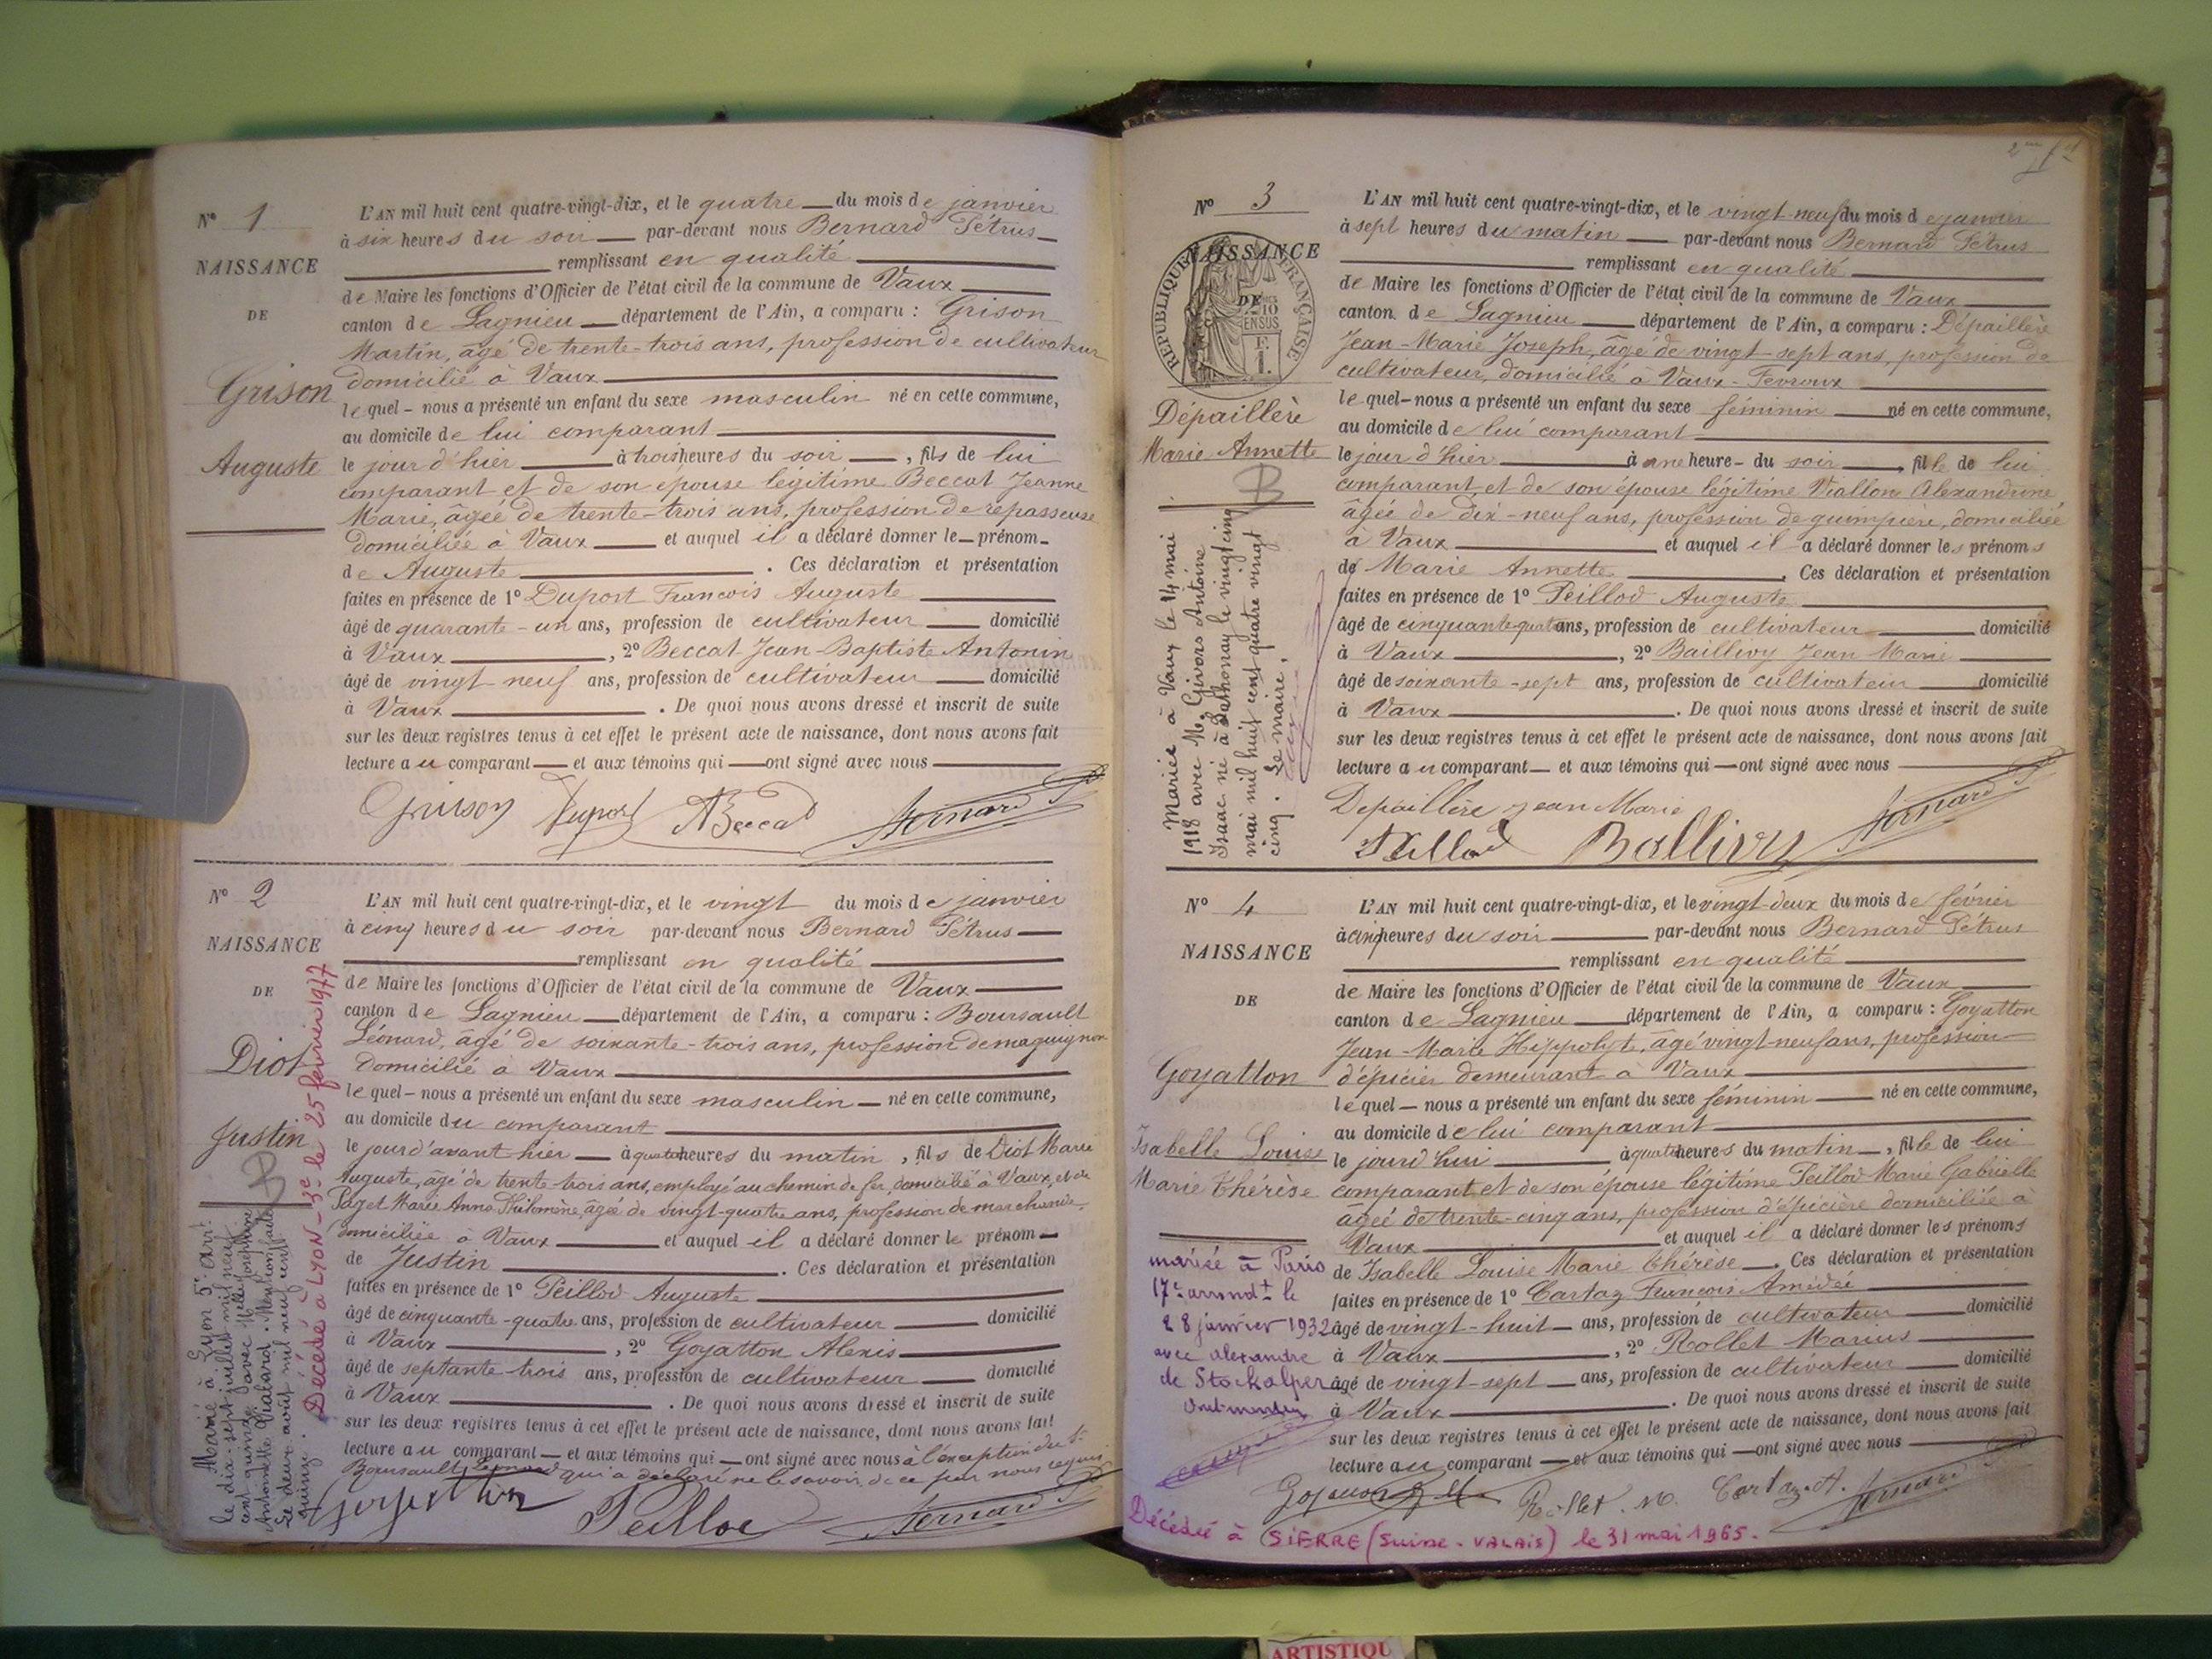 N° 1
NAISSANCE
DE
Grison
Auguste
L'AN mil huit cent quatre-vingt-dix, et le quatre du mois de janvier
à six heures du soir par-devant nous Bernard Pétrus
remplissant en qualité
de Maire les fonctions d'Officier de l'état civil de la commune de Vaux
canton de Lagnieu département de l'Ain, a comparu : Grison
Martin, âgé de trente-trois ans, profession de cultivateur
domicilié à Vaux
lequel nous a présenté un enfant du sexe masculin né en cette commune,
au domicile de lui comparant
le jour d'hier à trois heures du soir, fils de lui
comparant et de son épouse légitime Beccat Jeanne
Marie, âgée de trente-trois ans, profession de repasseuse
domiciliée à Vaux et auquel il a déclaré donner le prénom
de Auguste. Ces déclaration et présentation
faites en présence de 1° Duport François Auguste
âgé de quarante-un ans, profession de cultivateur domicilié
à Vaux, 2° Beccat Jean-Baptiste Antonin
âgé de vingt-neuf ans, profession de cultivateur domicilié
à Vaux. De quoi nous avons dressé et inscrit de suite
sur les deux registres tenus à cet effet le présent acte de naissance, dont nous avons fait
lecture au comparant et aux témoins qui ont signé avec nous
Grison Duport A Beccat Bernard P
N° 2
NAISSANCE
DE
Diot
Justin
Marié à Lyon 5e arrt
le dix-sept juillet mil neuf
cent quinze avec Melle Joséphine
Antoinette Vialard. Mention faite
le deux août mil neuf cent
quinze.
Décédé à LYON-3e le 25 février 1977
L'AN mil huit cent quatre-vingt-dix, et le vingt du mois de janvier
à cinq heures du soir par-devant nous Bernard Pétrus
remplissant en qualité
de Maire les fonctions d'Officier de l'état civil de la commune de Vaux
canton de Lagnieu département de l'Ain, a comparu : Boursault
Léonard, âgé de soixante-trois ans, profession de maquignon
domicilié à Vaux
lequel nous a présenté un enfant du sexe masculin né en cette commune,
au domicile du comparant
le jour d'avant hier à quatre heures du matin, fils de Diot Marie
Auguste, âgé de trente trois ans, employé au chemin de fer, domicilié à Vaux, et de
Paget Marie Anne Philomène, âgée de vingt-quatre ans, profession de marchande,
domiciliée à Vaux et auquel il a déclaré donner le prénom
de Justin. Ces déclaration et présentation
faites en présence de 1° Peillod Auguste
âgé de cinquante-quatre ans, profession de cultivateur domicilié
à Vaux, 2° Goyatton Alexis
âgé de septante trois ans, profession de cultivateur domicilié
à Vaux. De quoi nous avons dressé et inscrit de suite
sur les deux registres tenus à cet effet le présent acte de naissance, dont nous avons fait
lecture au comparant et aux témoins qui ont signé avec nous à l'exception du Sr
Boursault Léonard qui a déclaré ne le savoir de ce par nous requis
Goyatton Peillod Bernard P
2me
N° 3
NAISSANCE
DE
REPUBLIQUE FRANÇAISE
2/10 EN SUS
Dépaillère
Marie Annette
Mariée à Vaux le 14 mai
1918 avec Mr. Givors Antoine
Isaac né à Sathonay le vingt cinq
mai mil huit cent quatre vingt
cinq. Le maire,
L'AN mil huit cent quatre-vingt-dix, et le vingt-neuf du mois de janvier
à sept heures du matin par-devant nous Bernard Pétrus
remplissant en qualité
de Maire les fonctions d'Officier de l'état civil de la commune de Vaux
canton de Lagnieu département de l'Ain, a comparu : Dépaillère
Jean-Marie Joseph, âgé de vingt-sept ans, profession de
cultivateur, domicilié à Vaux-Fevroux
lequel nous a présenté un enfant du sexe féminin né en cette commune,
au domicile de lui comparant
le jour d'hier à une heure du soir, fille de lui
comparant et de son épouse légitime Viallon Alexandrine
âgée de dix-neuf ans, profession de guimpière, domiciliée
à Vaux et auquel il a déclaré donner les prénoms
de Marie Annette. Ces déclaration et présentation
faites en présence de 1° Peillod Auguste
âgé de cinquante-quatre ans, profession de cultivateur domicilié
à Vaux, 2° Baillivy Jean Marie
âgé de soixante-sept ans, profession de cultivateur domicilié
à Vaux. De quoi nous avons dressé et inscrit de suite
sur les deux registres tenus à cet effet le présent acte de naissance, dont nous avons fait
lecture au comparant et aux témoins qui ont signé avec nous
Depaillère Jean Marie
Peillod Ballivy Bernard P
N° 4
NAISSANCE
DE
Goyatton
Isabelle Louise
Marie Thérèse
mariée à Paris
17e arrondt le
28 janvier 1932
avec Alexandre
de Stockalper
L'AN mil huit cent quatre-vingt-dix, et le vingt-deux du mois de février
à cinq heures du soir par-devant nous Bernard Pétrus
remplissant en qualité
de Maire les fonctions d'Officier de l'état civil de la commune de Vaux
canton de Lagnieu département de l'Ain, a comparu : Goyatton
Jean-Marie Hippolyte, âgé vingt-neuf ans, profession
d'épicier demeurant à Vaux
lequel nous a présenté un enfant du sexe féminin né en cette commune,
au domicile de lui comparant
le jourd'hui à quatre heures du matin, fille de lui
comparant et de son épouse légitime Peillod Marie Gabrielle
âgée de trente-cinq ans, profession d'épicière domiciliée à
Vaux et auquel il a déclaré donner les prénoms
de Isabelle Louise Marie Thérèse. Ces déclaration et présentation
faites en présence de 1° Cartaz François Amédée
âgé de vingt-huit ans, profession de cultivateur domicilié
à Vaux, 2° Rollet Marius
âgé de vingt-sept ans, profession de cultivateur domicilié
à Vaux. De quoi nous avons dressé et inscrit de suite
sur les deux registres tenus à cet effet le présent acte de naissance, dont nous avons fait
lecture au comparant et aux témoins qui ont signé avec nous
Goyatton Rollet M. Cartaz A. Bernard P
Décédée à SIERRE (Suisse-VALAIS) le 31 mai 1965.
ARTISTIQU